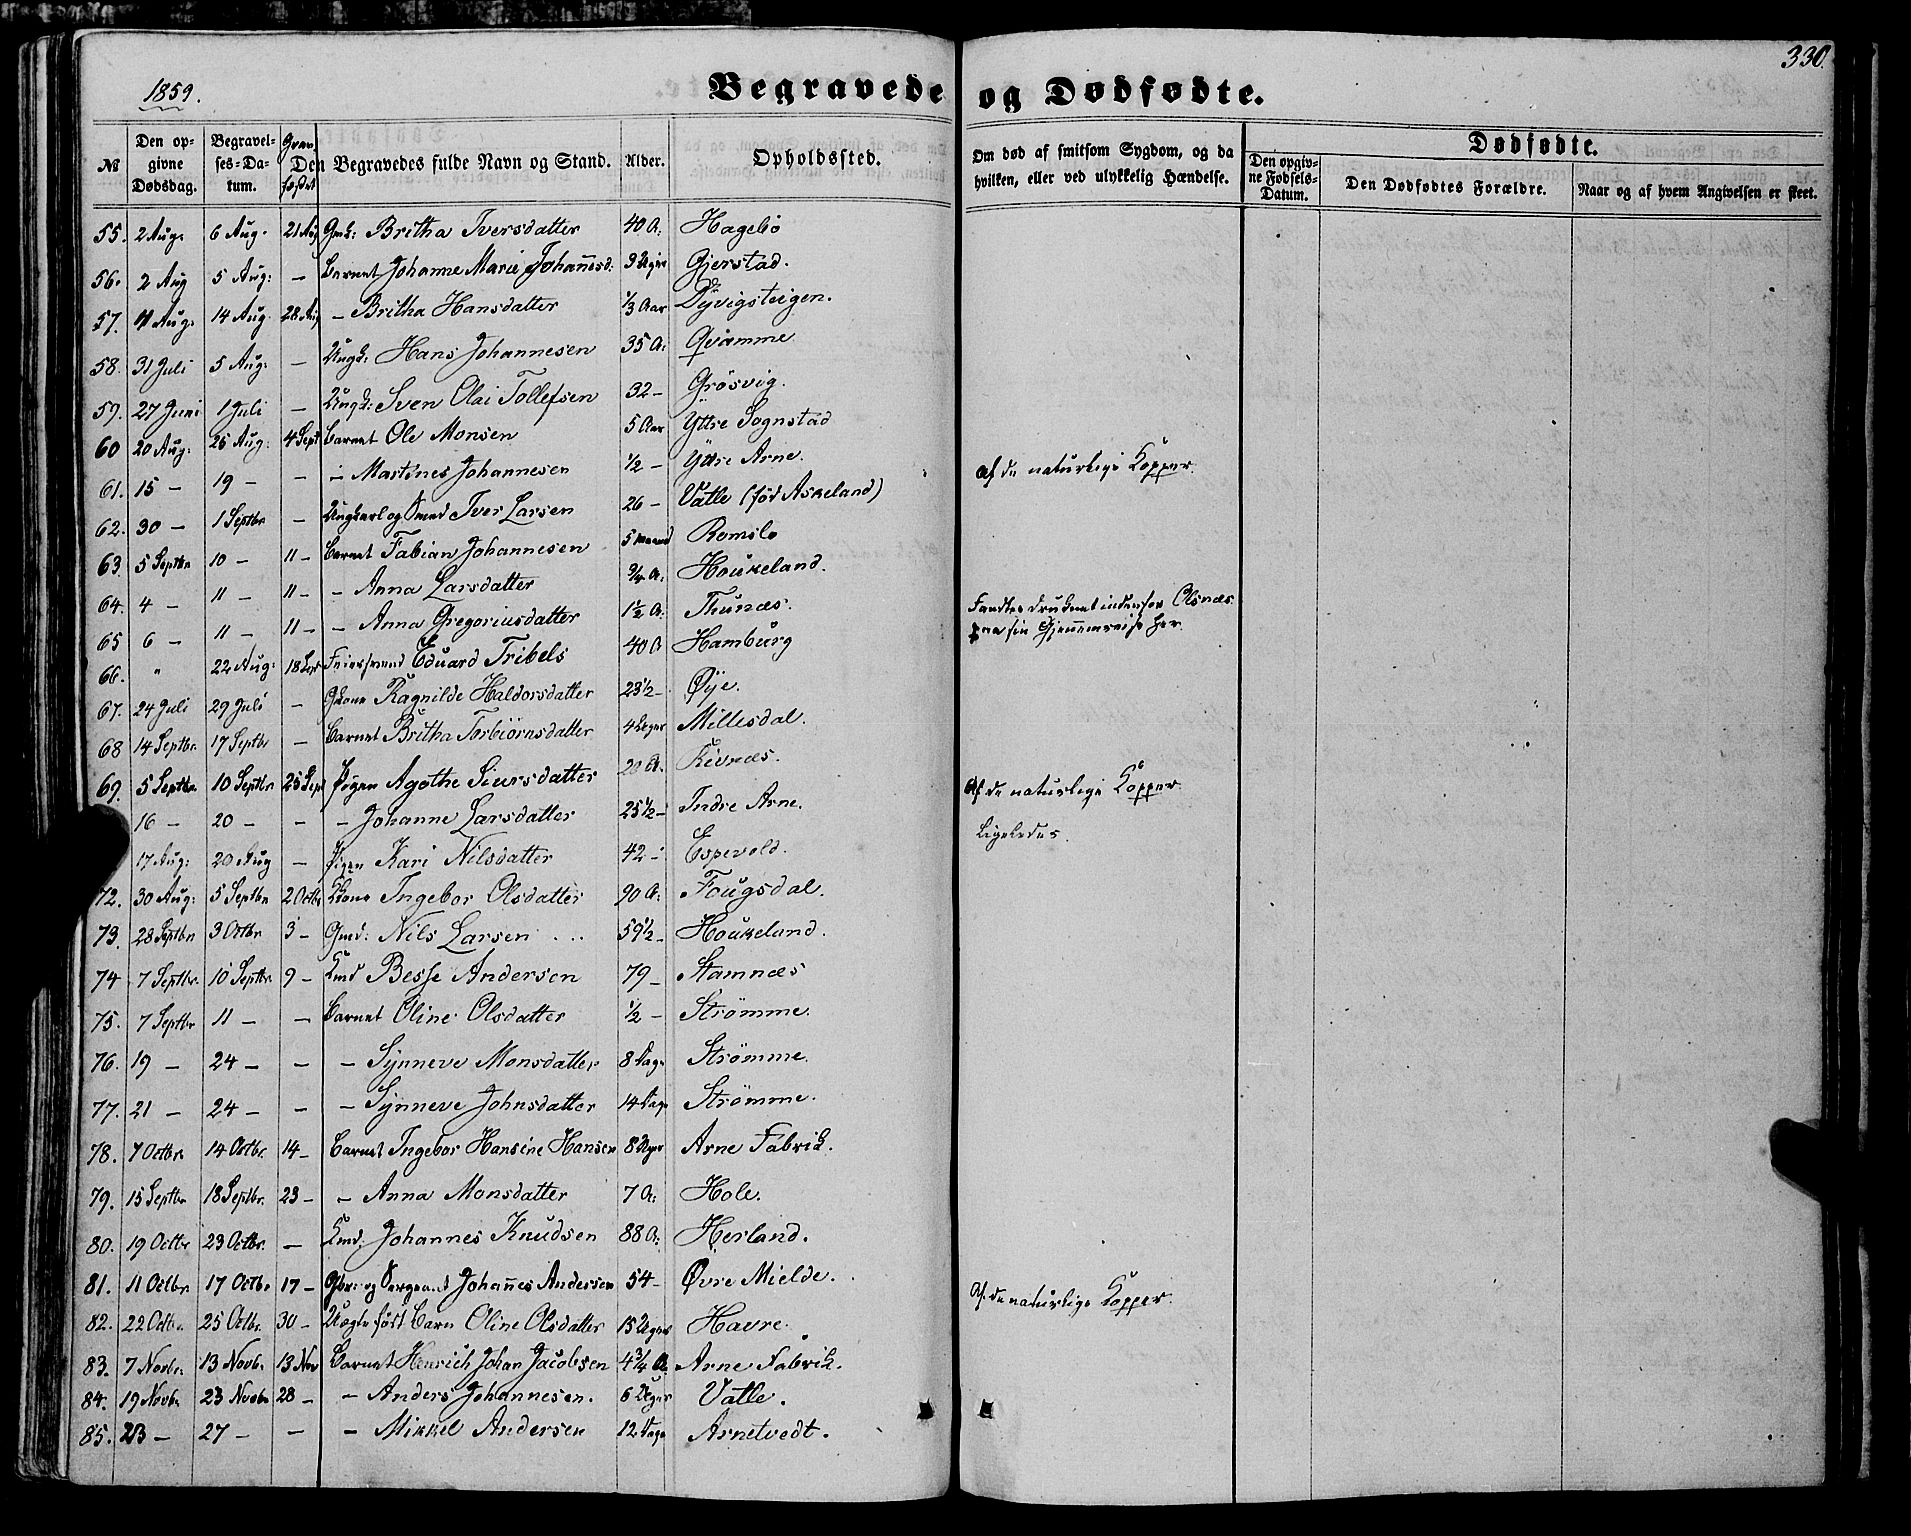 330.
1859.
Begravede og Dødfødte.
№ | Den opgivne Dødsdag. | Begravelses-Datum. | Den Begravedes fulde Navn og Stand. | Alder. | Opholdssted. | Om død af smitsom Sygdom, og da hvilken, eller ved ulykkelig Hændelse. | Dødfødte.
Den opgivne Fødsels-Datum. | Den Dødfødtes Forældre. | Naar og af hvem Angivelsen er skeet.
55. 2 Aug: 6 Aug. 21 Aug Britha Iversdatter 40 A: Hagebö
56. 2 Aug 5 Aug: — Barnet Johanne Marie Johannesd: 3 Uger Gjerstad.
57. Aug: 14 Aug. 28 Aug — Britha Hansdatter 1/3 Aar Dyvigsteigen.
58. 31 Juli 5 Aug: — Ungk: Hans Johannesen 35 A: Qvamme
59. 27 Juni 1 Juli — Ungk: Sven Olai Tollefsen 32 — Grösvig.
60 20 Aug: 25 Aug: 4 Sept Barnet Ole Monsen 5 Aar Yttre Sognstad
61. 15 — 19 — — — Martines Johannesen 1/2 — Yttre Arne. Af de naturlige Kopper.
62. 30 — 1 Septbr — Ungkarl og Smed Iver Larsen 26 — Vatle (föd Askeland)
63. 5 Septbr 10 — 11 — Barnet Fabian Johannesen 5 Maaned Romslo
64. 4 — 11 — 11 — — Anna Larsdatter 3/4 A: Houkeland.
65 6 — 11 — 11 — — Anna Gregoriusdatter 1½ A: Thunæs.
66. " 22 Aug: 18 Sep Eduard Tribels 40 A Hamburg Fandtes druknet indenfor Olsnæs paa sin Gjennemreise her.
67. 24 Juli 29 Juli — Kone Ragnilde Haldorsdatter 23½ — Øye.
68 14 Septbr. 17 Septbr — Barnet Britha Torbiörnsdatter 4 Uger Millesdal.
69. 5 Septbr. 10 Septbr 25 Sept Pigen Agothe Siursdatter 20 A. Risnæs. Af de naturlige Kopper.
16 — 20 — — — Johanne Larsdatter 25½ — Indre Arne. Ligeledes.
17 Aug: 20 Aug — Pigen Kari Nilsdatter 42 — Espevold.
72. 30 Aug: 5 Septbr 2 Octbr Kone Ingebor Olsdatter 90 A: Fougsdal.
73. 28 Septbr 3 Octbr. 3 — Gmd: Nils Larsen 59½ — Houkeland.
74 7 Septbr. 10 Septbr. 9 — Kmd Besse Andersen 79 — Stamnæs
75. 7 Septbr 11 — — Barnet Oline Olsdatter 1/2 — Strömme.
76. 19 — 24 — — — Synneve Monsdatter 8 Dage Strömme.
77. 21 — 24 — — — Synneve Johnsdatter 14 Dage Strömme.
78. 7 Octbr. 14 Octbr. 14 — Barnet Ingebor Hansine Hansen 8 Uger Arne Fabrik.
79. 15 Septbr 18 Septbr. 23 — — Anna Monsdatter 7 A: Hole.
80. 19 Octbr 23 Octbr. — Kmd. Johannes Knudsen 88 A: Herland.
81. 11 Octbr. 17 Octbr 17 — Gbr: og Sergeant Johannes Andersen 54 — Øvre Mielde. Af de naturlige Kopper.
82. 22 Octbr. 25 Octbr. 30 — Uægte födt Barn Oline Olsdatter 15 Uger Havre.
83. 7 Novbr. 13 Novb. 13 Nov Barnet Henrich Johan Jacobsen 4¾ A. Arne Fabrik.
84. 19 Novb. 23 Novbr 28 — — Anders Johannesen. 6 Uger Vatle.
85. 23 — 27 — — — Mikkel Andersen 12 Dage Arnetvedt.